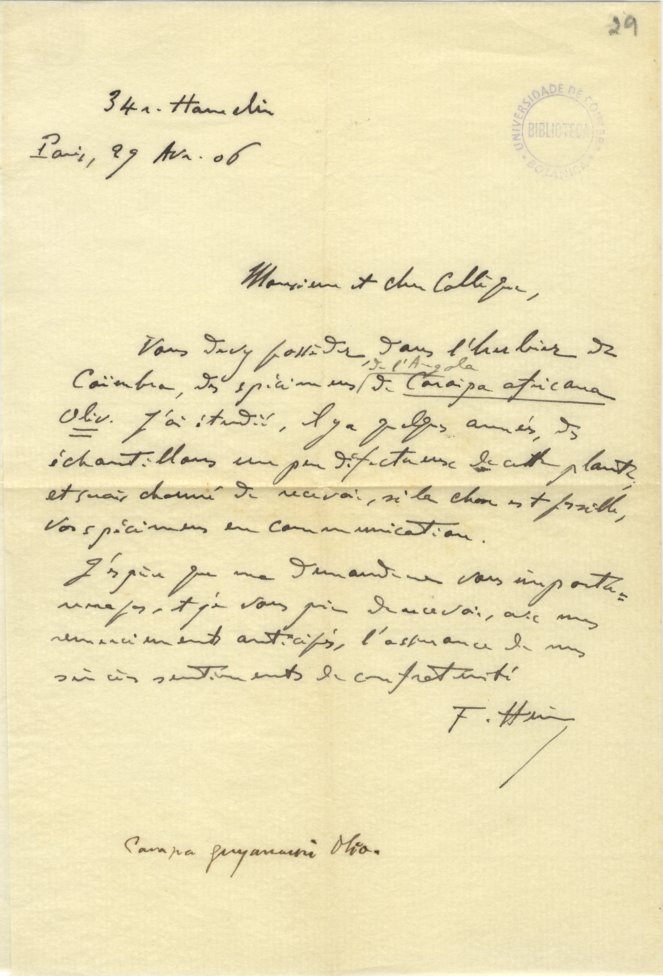 29
UNIVERSIDADE DE COIMBRA
BIBLIOTECA
BOTANICA
34 r. Hamelin
Paris, 29 Avr. 06
Monsieur et cher Collègue,
Vous devez posséder, dans l'herbier de
de l'Angola
Coïmbra, des spécimens de Caraipa africana
Oliv. J'ai étudié, il y a quelques années, des
échantillons un peu défectueux de cette plante,
et serais charmé de recevoir, si la chose est possible,
vos spécimens en communication.
J'espère que ma demande ne vous importu=
nera pas, et je vous prie de recevoir, avec mes
remerciements anticipés, l'assurance de mes
sincères sentiments de confraternité
F. Heim
Carapa guyanensis Oliv.